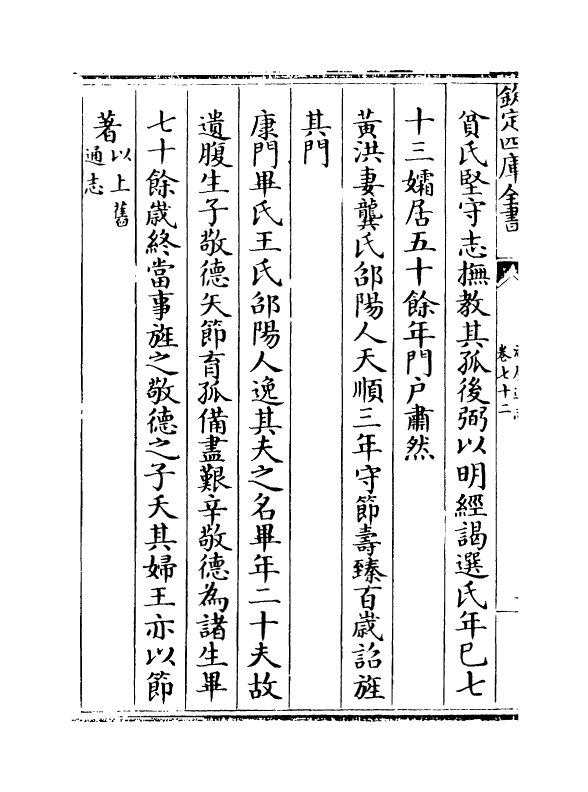 欽定四庫全書
卷七十二
貧氏堅守志撫教其孤後弼以明經謁選氏年已七
十三孀居五十餘年門户肅然
黄洪妻龔氏郃陽人天順三年守節壽臻百歳詔旌
其門
康門畢氏王氏郃陽人逸其夫之名畢年二十夫故
遺腹生子敬德矢節育孤備盡艱辛敬德為諸生畢
七十餘歳終當事旌之敬德之子夭其婦王亦以節
著以上舊
通志